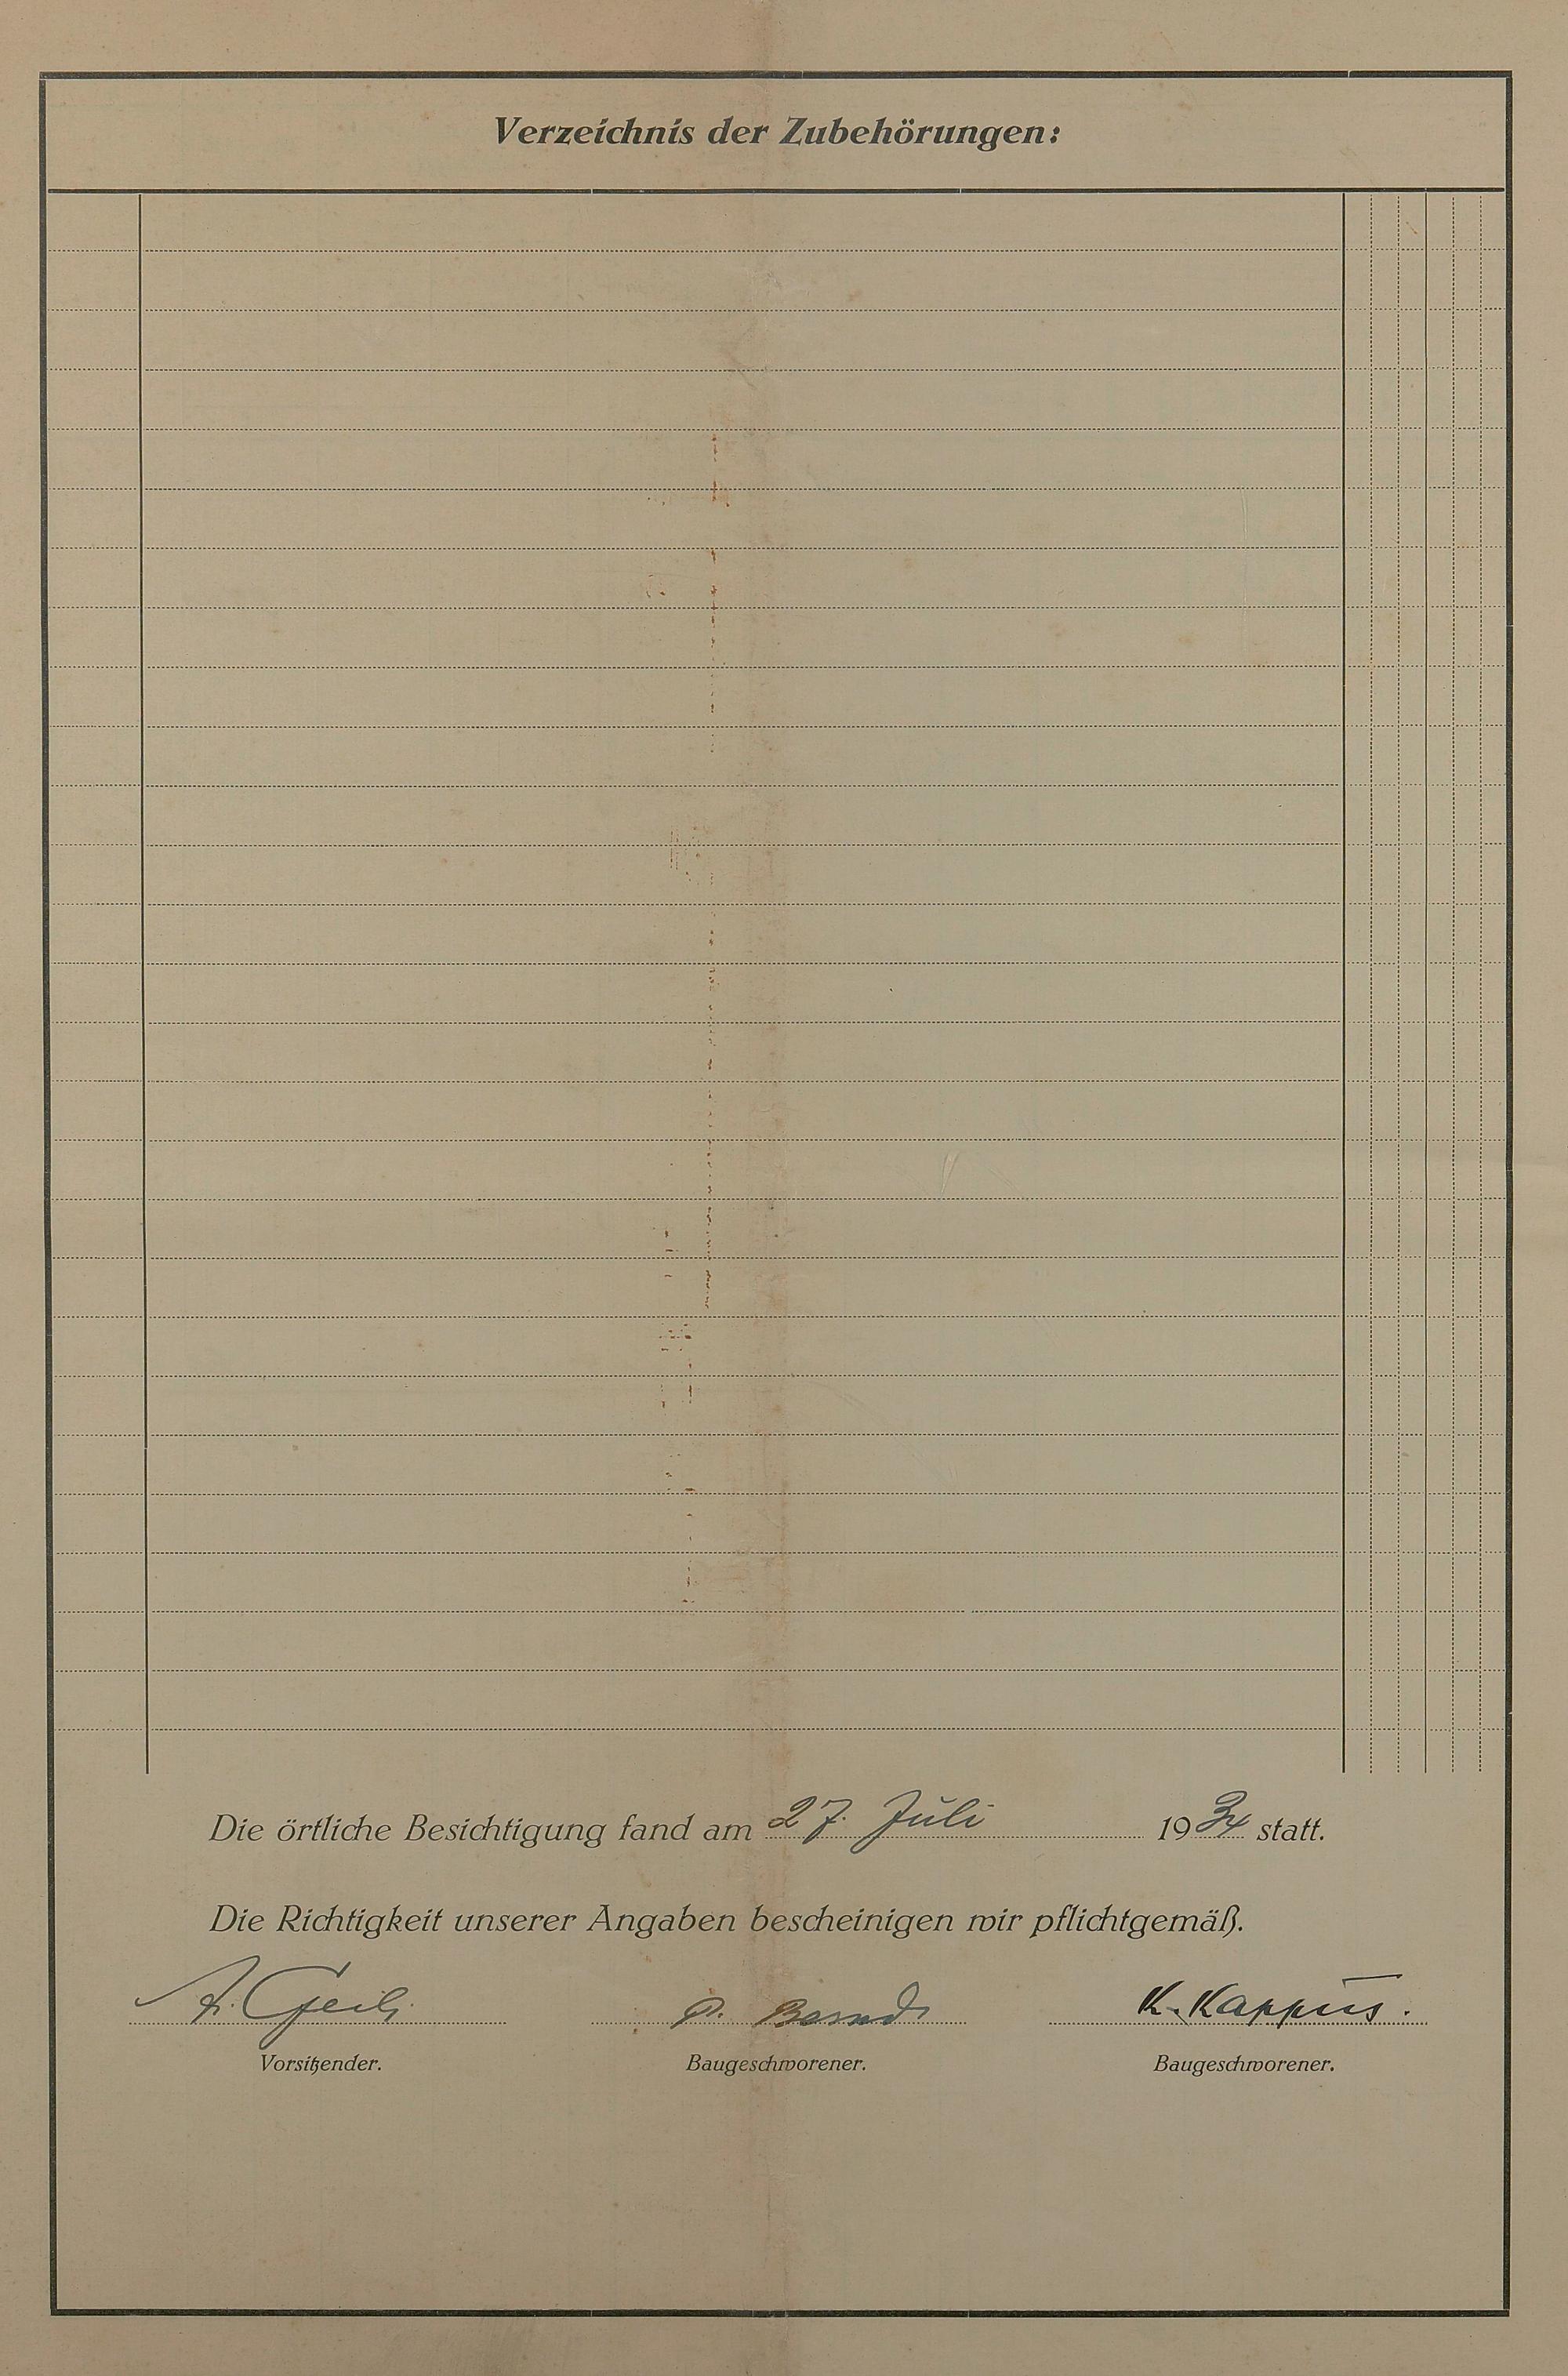 Verzeichnis der Zubehörungen:
Die örtliche Besichtigung fand am 27. Juli 1934 statt.
Die Richtigkeit unserer Angaben bescheinigen wir pflichtgemäß.
K. Kappus.
Vorsitzender. Baugeschworener. Baugeschworener.